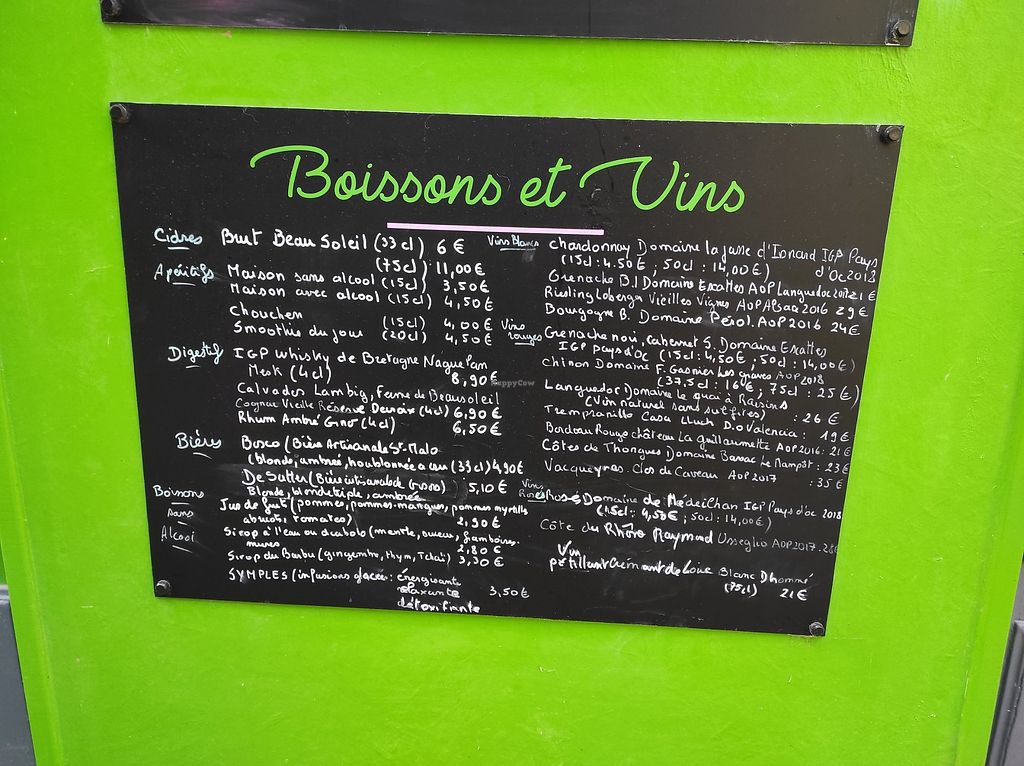 Boissons et Vins
Cidres Brut Beau Soleil (33 cl) 6 €
(75cl) 11,00 €
Apéritifs Maison sans alcool (15cl) 3,50 €
Maison avec alcool (15cl) 4,50 €
Chouchen (15cl) 4,00 €
Smoothie du jour (20cl) 4,50 €
Digestif IGP Whisky de Bretagne Naguelan
Mesk (4cl) 8,90 €
Calvados Lambig, Ferme de Beausoleil
Cognac Vieille Réserve (4cl) 6,90 €
Rhum Ambré Gino (4cl) 6,50 €
Bières Bosco (Bière Artisanale St-Malo
(blonde, ambrée, houblonnée (33cl) 4,90 €
De Sutter (Bière artisanale de 5,10 €
Blonde, blonde triple, ambrée
Boissons sans Alcool
Jus de fruit (pommes, pommes-mangues, pommes myrtilles
abricots, tomates) 2,90 €
Sirop à l'eau ou diabolo (menthe, framboises
mures 2,80 €
Sirop du Barbu (gingembre, thym, Tchaï) 3,30 €
SYMPLES (infusions glacées: énergisante
relaxante 3,50 €
détoxifiante
Vins Blancs Chardonnay Domaine la IGP Pays
(15cl: 4.50 €; 50cl: 14,00 €) d'Oc 2018
Grenache B. Domaine Escattes AOP Languedoc 2017 21 €
Riesling Loberger Vieilles Vignes AOP Alsace 2016 29 €
Bourgogne B. Domaine Pérol. AOP 2016 24 €
Vins rouges Grenache noir, cabernet S. Domaine Escattes
IGP Pays d'Oc (15cl: 4,50 €; 50cl: 14,00 €)
Chinon Domaine F. Gasnier Les graves AOP 2018
(37,5cl: 16 €, 75cl: 25 €)
Languedoc Domaine le quai à Raisins
(Vin naturel sans sulfites) : 26 €
Tempranillo Casa Lluch D.o Valencia : 19 €
Bordeau Rouge château La guillaumette AOP 2016: 21 €
Côtes de Thongues Domaine Bassac Le Manpot : 23 €
Vacqueyras. Clos de Caveau AOP 2017 : 35 €
Vins Rosés Rosé Domaine de Médeilhan IGP Pays d'oc 2018
(15cl: 4,50 €; 50cl: 14,00 €)
Côte du Rhône Raymond Usseglio AOP 2017: 28 €
Vin
pétillant Crémant de Loire Blanc Dhommé
(75cl) 21 €
HappyCow